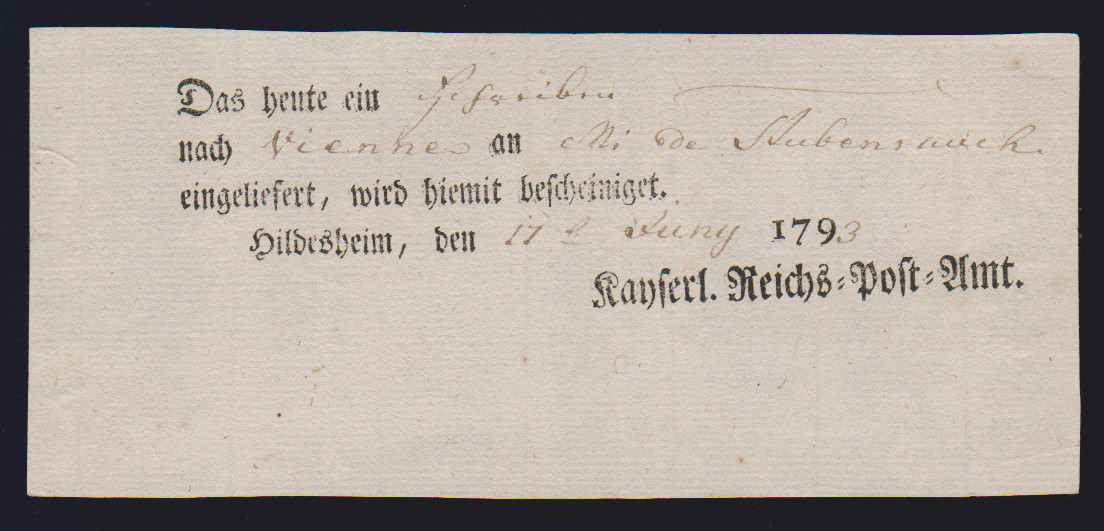 Das heute ein Schreiben
nach Vienne an Mr de Stubenrauch.
eingeliefert, wird hiemit bescheiniget.
Hildesheim, den 17t Juny 1793
Kayserl. Reichs=Post=Amt.